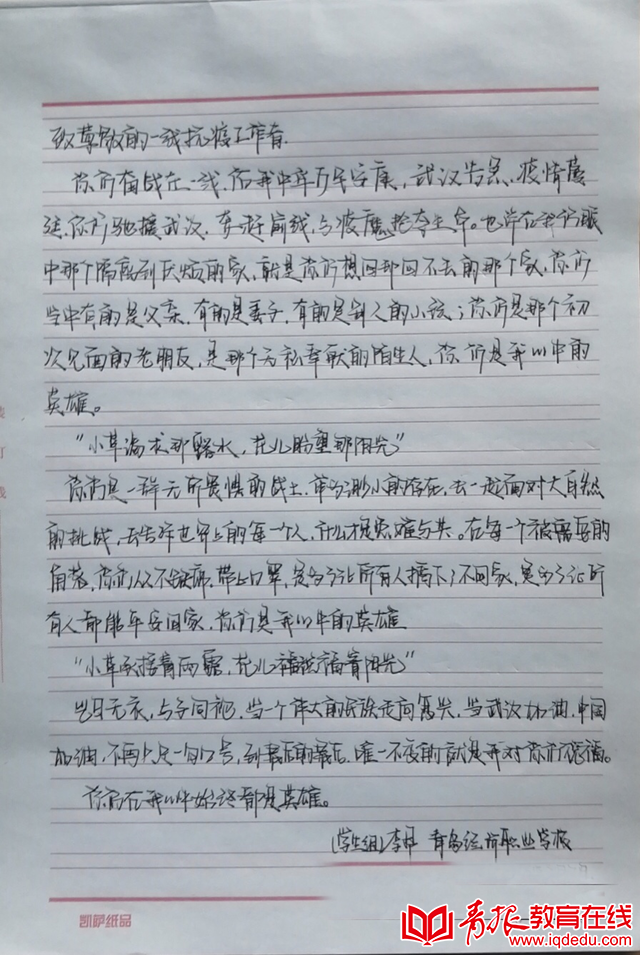 致尊敬的一线抗疫工作者
你们奋战在一线,佑我中华万年安康,武汉告急、疫情蔓
延,你们驰援武汉,奔赴前线,与疫魔抢夺生命。也许在我们眼
中那个隔离到厌烦的家,就是你们想回却回不去的那个家,你们
当中有的是父亲,有的是妻子,有的是别人的小孩;你们是那个初
次见面的老朋友,是那个无私奉献的陌生人,你们是我心中的
英雄。
“小草渴求那露水,花儿盼望那阳光”
你们是一群无所畏惧的战士,带着渺小的存在,去一起面对大自然
的挑战,去告诉世界上的每一个人,什么才是患难与共。在每一个被需要的
角落,你们从不缺席,带上口罩,是为了让所有人摘下了不回家,是为了让所
有人都能平安回家,你们是我心中的英雄
“小草承接着雨露,花儿 着阳光”
岂曰无衣,与子同袍,当一个伟大的民族走向复兴,当武汉加油,中国
加油,不再只是一句口号,到最后的最后,唯一不变的就是我对你们的祝福。
你们在我心中始终都是英雄。
(学生组)李 青岛经济职业学校
凯萨纸品
青报教育在线
www.iqdedu.com